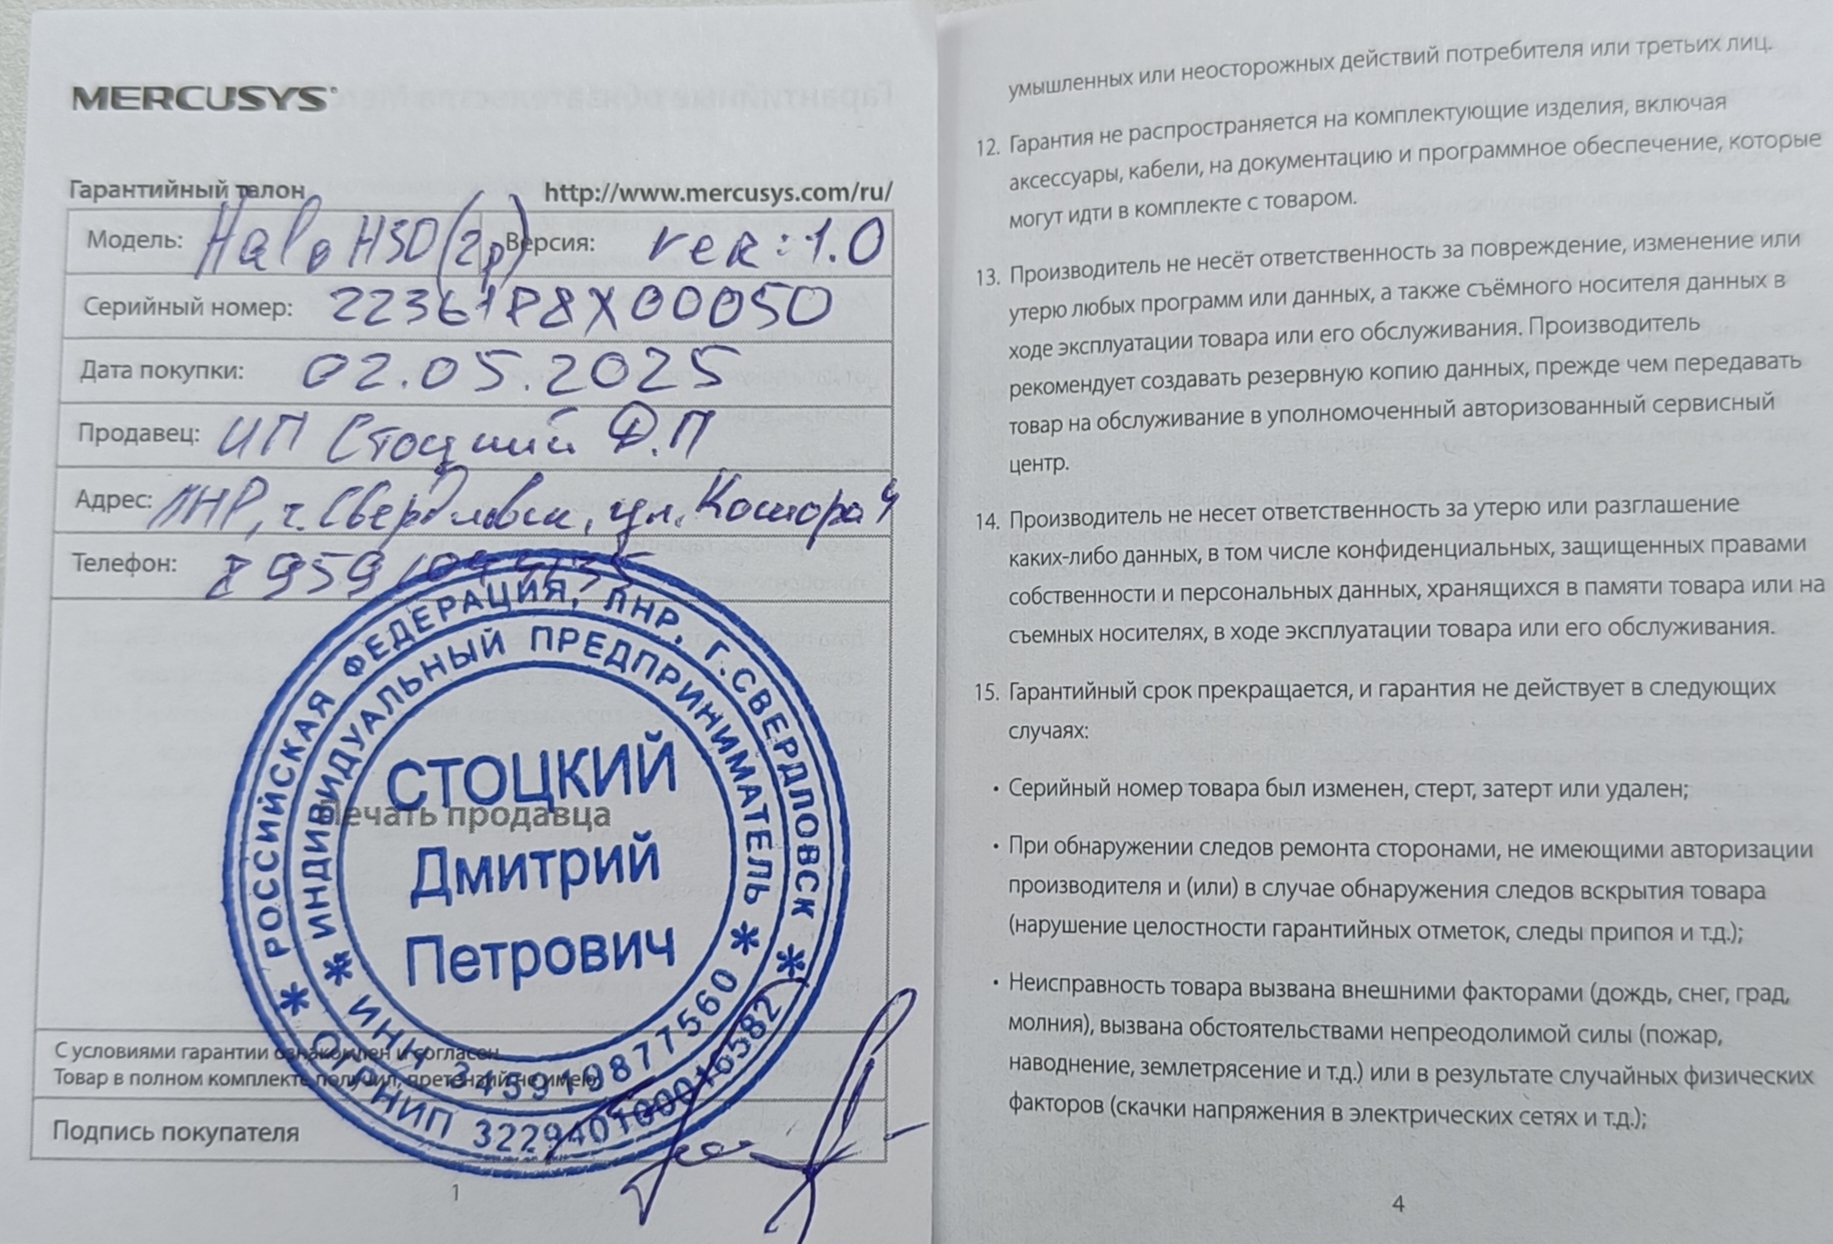 MERCUSYS
Гарантийный талон http://www.mercusys.com/ru/
Модель: Halo H30(2p) Версия: ver: 1.0
Серийный номер: 22361P8X00050
Дата покупки: 02.05.2025
Продавец: ИП Стоцкий Д.П
Адрес: ЛНР, г. Свердловск, ул.
Телефон:
РОССИЙСКАЯ ФЕДЕРАЦИЯ, ЛНР, Г.СВЕРДЛОВСК
ИНДИВИДУАЛЬНЫЙ ПРЕДПРИНИМАТЕЛЬ
СТОЦКИЙ
Печать продавца
Дмитрий
Петрович
* ИНН 345919877560 *
* ОГРНИП *
С условиями гарантии ознакомлен и согласен
Товар в полном комплекте получил, претензий не имею
Подпись покупателя
1
умышленных или неосторожных действий потребителя или третьих лиц.
12. Гарантия не распространяется на комплектующие изделия, включая
аксессуары, кабели, на документацию и программное обеспечение, которые
могут идти в комплекте с товаром.
13. Производитель не несёт ответственность за повреждение, изменение или
утерю любых программ или данных, а также съёмного носителя данных в
ходе эксплуатации товара или его обслуживания. Производитель
рекомендует создавать резервную копию данных, прежде чем передавать
товар на обслуживание в уполномоченный авторизованный сервисный
центр.
14. Производитель не несет ответственность за утерю или разглашение
каких-либо данных, в том числе конфиденциальных, защищенных правами
собственности и персональных данных, хранящихся в памяти товара или на
съемных носителях, в ходе эксплуатации товара или его обслуживания.
15. Гарантийный срок прекращается, и гарантия не действует в следующих
случаях:
• Серийный номер товара был изменен, стерт, затерт или удален;
• При обнаружении следов ремонта сторонами, не имеющими авторизации
производителя и (или) в случае обнаружения следов вскрытия товара
(нарушение целостности гарантийных отметок, следы припоя и т.д.);
• Неисправность товара вызвана внешними факторами (дождь, снег, град,
молния), вызвана обстоятельствами непреодолимой силы (пожар,
наводнение, землетрясение и т.д.) или в результате случайных физических
факторов (скачки напряжения в электрических сетях и т.д.);
4